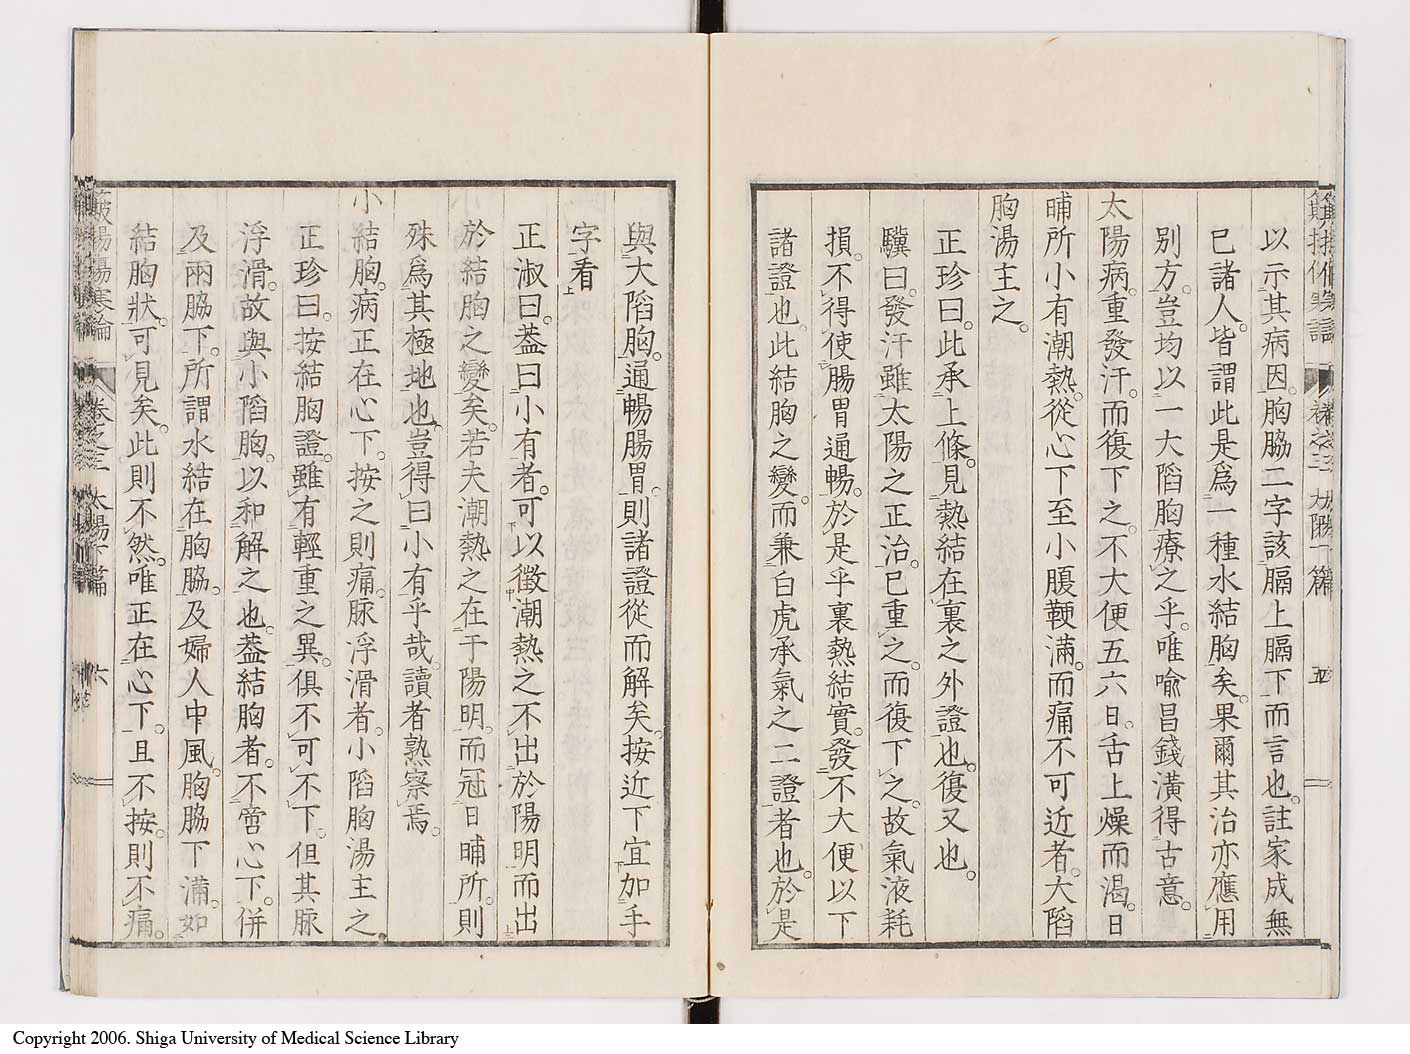 以示其病因。胸脇二字該膈上膈下而言也。註家成無
已諸人。皆謂此是爲一種水結胸矣。果爾其治亦應用
別方。豈均以一大陷胸療之乎。唯喩昌錢潢得古意。
太陽病。重發汗。而復下之。不大便五六日。舌上燥而渴。日
晡所小有潮熱。從心下至小腹鞕滿。而痛不可近者。大陷
胸湯主之。
正珍曰。此承上條。見熱結在裏之外證也。復又也。
驥曰。發汗雖太陽之正治。已重之。而復下之。故氣液耗
損。不得使腸胃通暢。於是乎裏熱結實。發不大便以下
諸證也。此結胸之變。而兼白虎承氣之二證者也。於是
與大陷胸。通暢腸胃。則諸證從而解矣。按近下宜加手
字看
正淑曰。蓋曰小有者。可以徵潮熱之不出於陽明而出
於結胸之變矣。若夫潮熱之在于陽明。而冠日晡所。則
殊爲其極地也。豈得曰小有乎哉。讀者熟察焉。
小結胸。病正在心下。按之則痛。脉浮滑者。小陷胸湯主之。
正珍曰。按結胸證。雖有輕重之異。俱不可不下。但其脉
浮滑。故與小陷胸。以和解之也。蓋結胸者。不啻心下。併
及兩脇下。所謂水結在胸脇。及婦人中風。胸脇下滿。如
結胸狀。可見矣。此則不然。唯正在心下。且不按。則不痛。
傷寒論 卷之三 太陽下篇 六